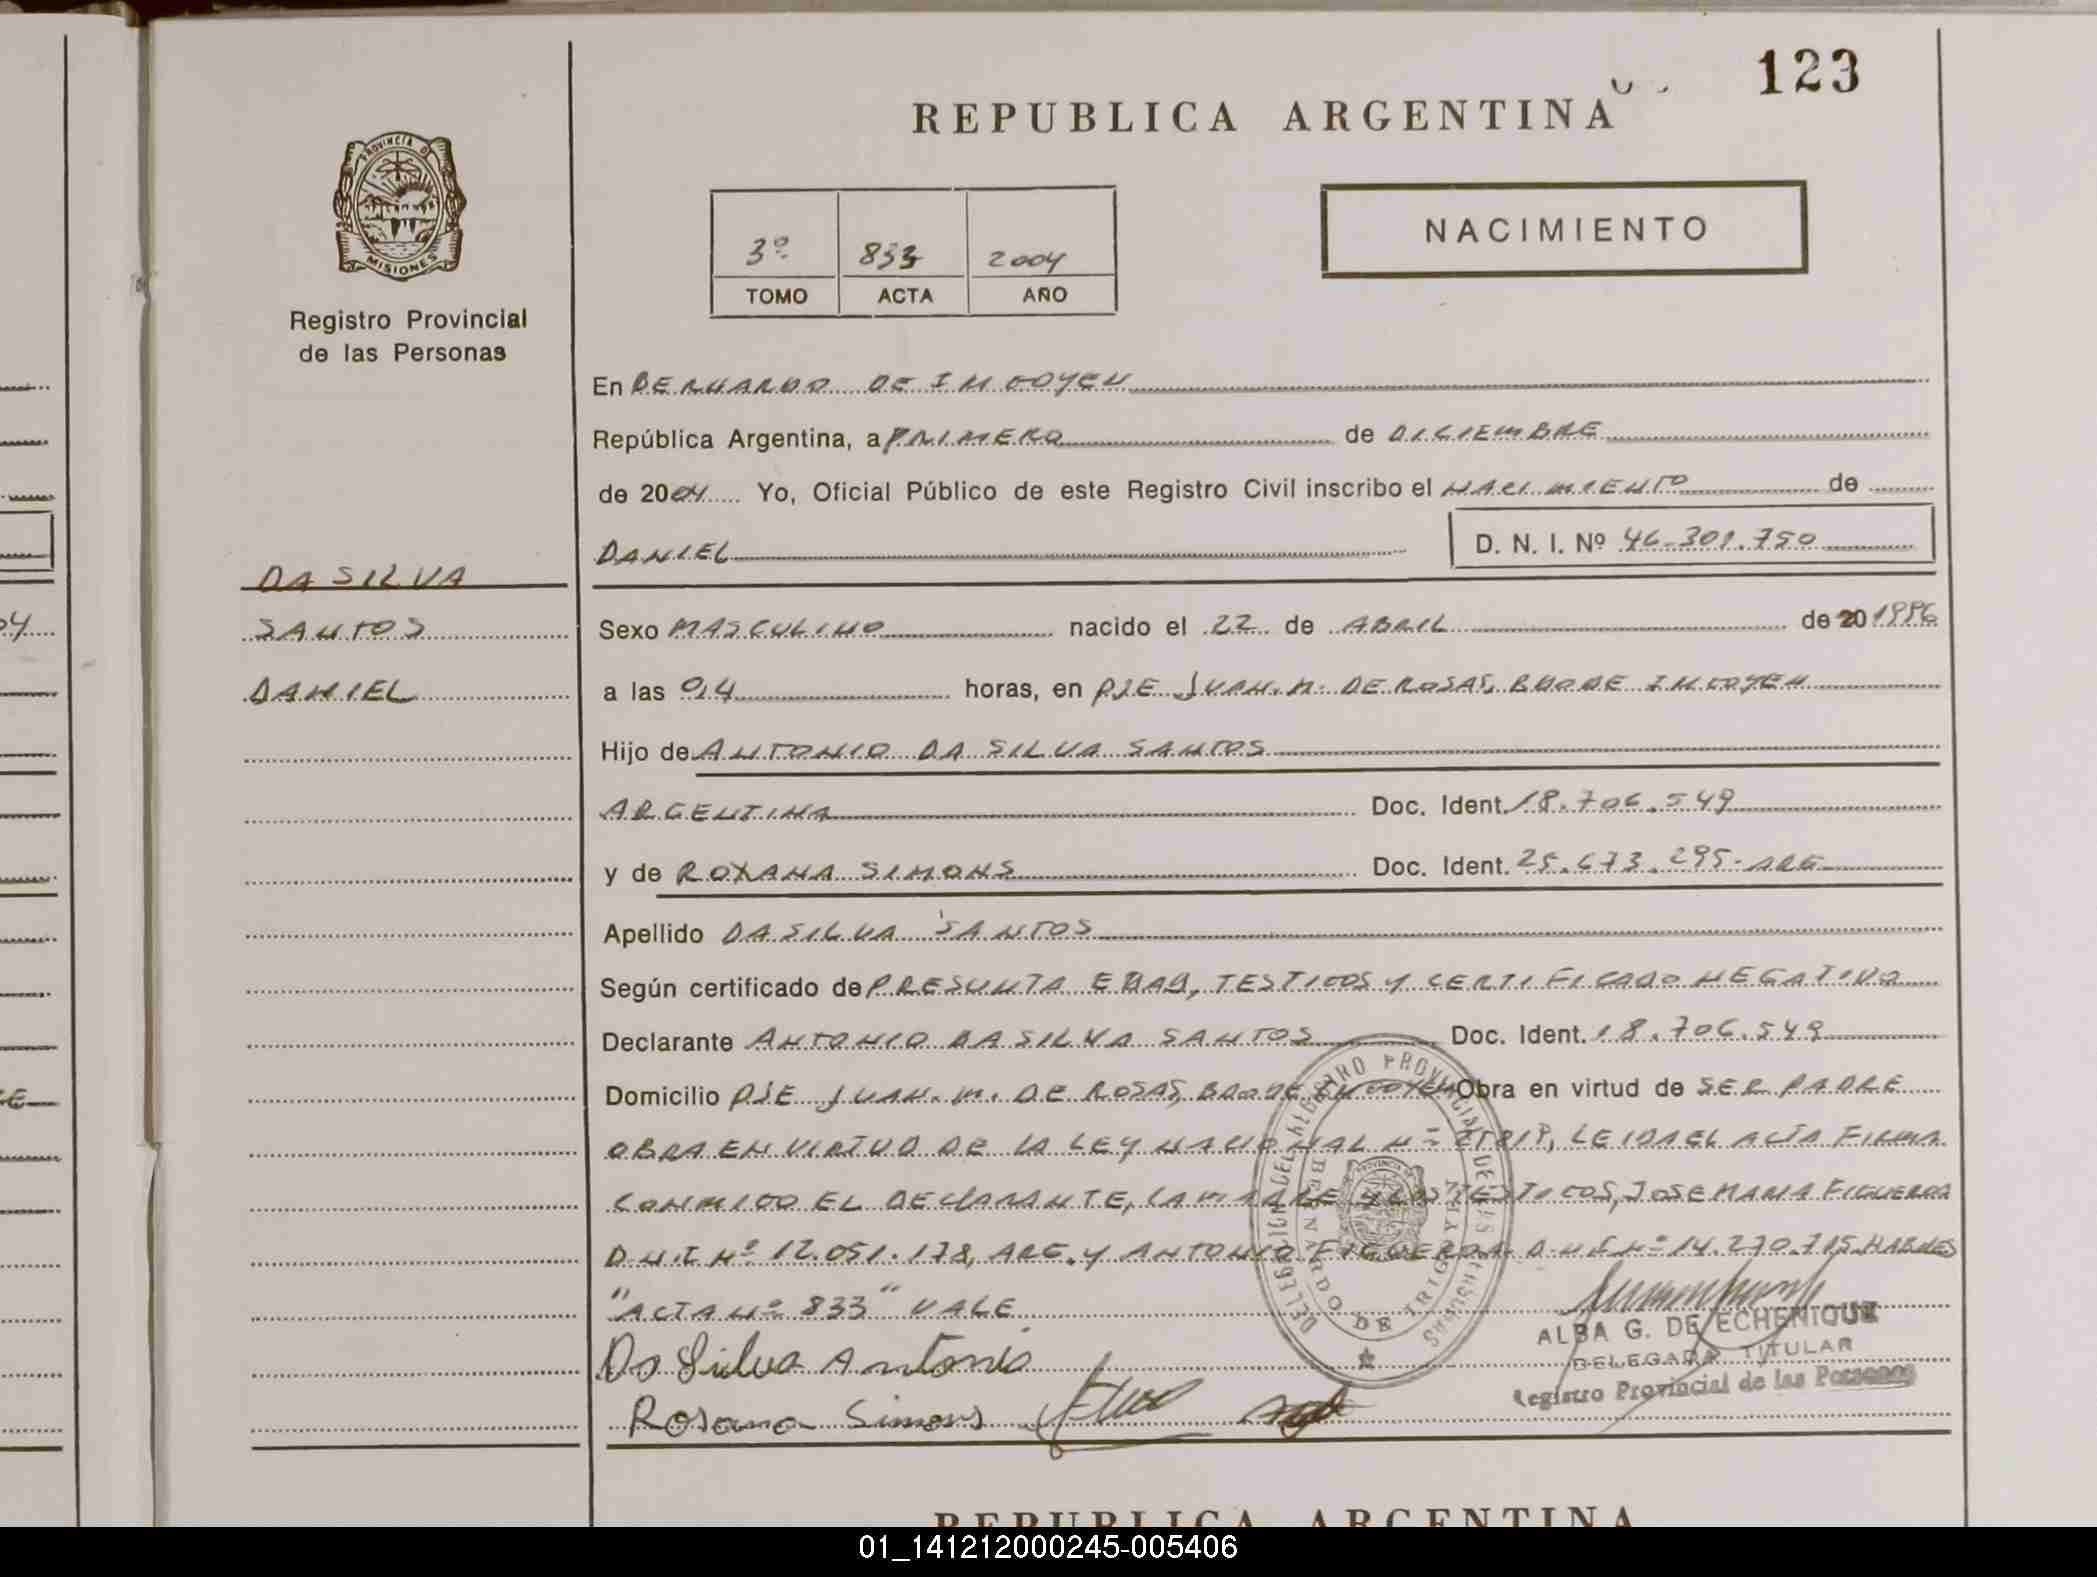 123
REPUBLICA ARGENTINA
PROVINCIA DE
MISIONES
Registro Provincial
de las Personas
3º 833 2004
TOMO ACTA AÑO
NACIMIENTO
En BERNARDO DE IRIGOYEN
República Argentina, a PRIMERO de DICIEMBRE
de 2004 Yo, Oficial Público de este Registro Civil inscribo el NACIMIENTO de
DANIEL D. N. I. Nº 46.301.750
DA SILVA
SANTOS
DANIEL
Sexo MASCULINO nacido el 22 de ABRIL de 20 1996
a las 04 horas, en PJE JUAN.M. DE ROSAS, BDO DE IRIGOYEN
Hijo de ANTONIO DA SILVA SANTOS
ARGENTINA Doc. Ident. 18.706.549
y de ROXANA SIMONS Doc. Ident. 25.673.295-ARG
Apellido DA SILVA SANTOS
Según certificado de PRESUNTA EDAD, TESTIGOS Y CERTIFICADO NEGATIVO
Declarante ANTONIO DA SILVA SANTOS Doc. Ident. 18.706.549
Domicilio PJE JUAN.M. DE ROSAS, BDO DE IRIGOYEN Obra en virtud de SER PADRE
OBRA EN VIRTUD DE LA LEY NACIONAL Nº LEIDA EL ACTA FIRMA
CONMIGO EL DECLARANTE, LA MADRE Y LOS TESTIGOS, JOSE MARIA FIGUEROA
D.N.I Nº 12.051.178, ARG. Y ANTONIO FIGUEROA D.N.I Nº 14.270.715
"ACTA Nº 833" VALE
Da Silva Antonio
Rosana Simons
DELEGACION DEL REGISTRO PROVINCIAL DE LAS PERSONAS
BERNARDO DE IRIGOYEN
ALBA G. DE ECHENIQUE
DELEGADA TITULAR
Registro Provincial de las Personas
REPUBLICA ARGENTINA
01_141212000245-005406